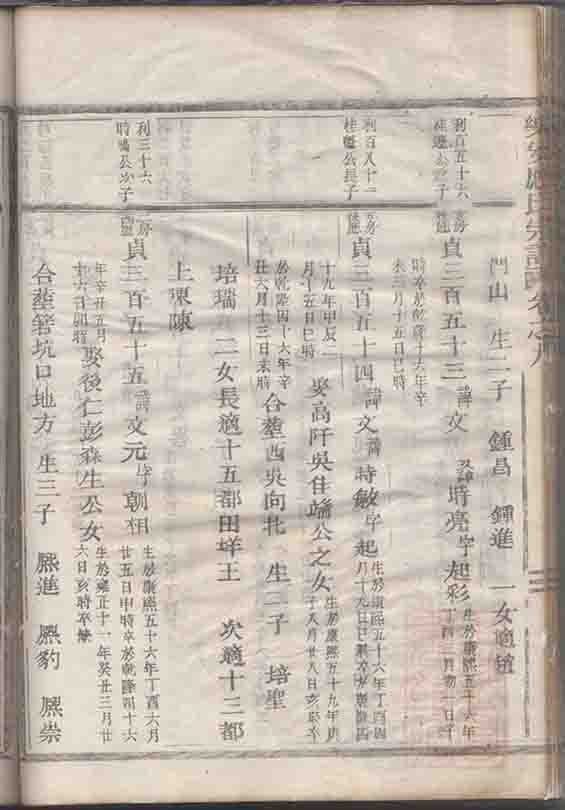 門山 生二子 鍾昌 鍾進 一女適
利百五十六
貞三百五十三 諱文 時亮 字起彩 生於康熙五十六年
時卒於乾隆十六年辛
未三月十五日巳時
利百八十二
桂魁公長子
貞三百五十四 諱文 時敏 字起 生於康熙五十六年丁酉四
十九年甲辰二
月十五日巳時
娶高阡吳佳瑞公之女 生於康熙五十九年庚
子八月廿八日亥時卒
於乾隆四十六年辛
丑六月十三日未時
合塟西吳向北 生二子 培聖
培瑞 二女長適十五都田垟王 次適十三都
上東陳
利三十六
時鳴公次子
貞三百五十五 諱文元 字朝相 生於康熙五十六年丁酉六月
廿五日申時卒於乾隆四十六
年辛丑五月
娶後仁彭森生公女 生於雍正十一年癸丑三月廿
六日亥時卒
合塟箬坑口地方 生三子 熙進 熙豹 熙崇